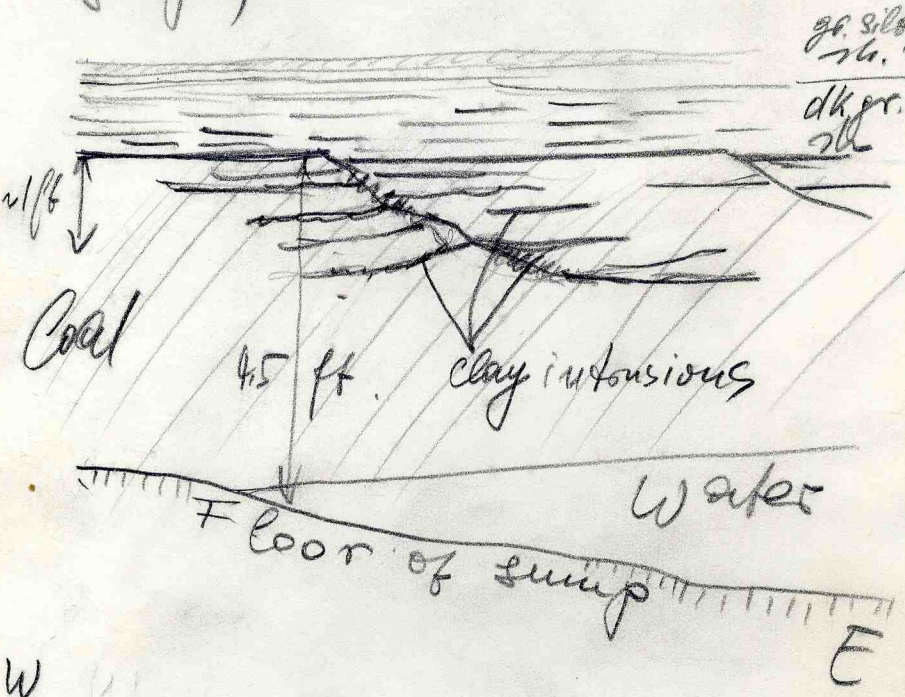 gr. silty
sh.
dk. gr.
sh
~1ft
Coal
4.5 ft.
clay intrusions
Water
Floor of sump
E
W